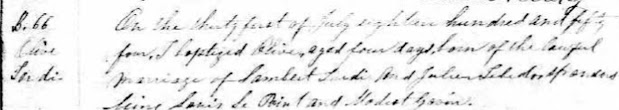 B. 66 On the thirty first of July eighteen hundred and fifty
Olive four, I baptized Olive, aged four days, born of the lawful
marriage of Lambert and Julie
being Louis Le Point and Modest